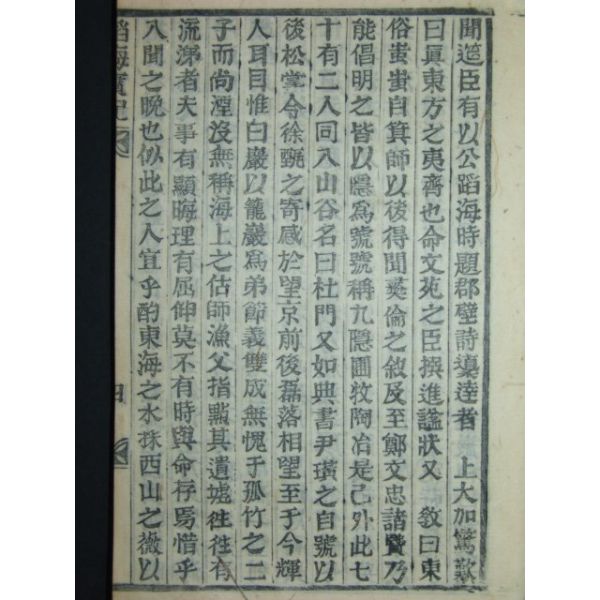 聞筵臣有以公蹈海時題郡壁詩壤達者 上大加驚歎
曰眞東方之夷齊也命文苑之臣撰進諡狀又 教曰東
俗蚩蚩自箕師以後得聞彛倫之敘及至鄭文忠諸賢乃
能倡明之皆以隱爲號號稱九隱圃牧陶冶是已外此七
十有二人同入山谷名曰杜門又如典書尹璜之自號以
後松掌令徐甄之寄感於望京前後磊落相望至于今輝
人耳目惟白巖以籠巖爲弟節義雙成無愧于孤竹之二
子而尚湮沒無稱海上之估師漁父指點其遺墟徃徃有
流涕者夫事有顯晦理有屈伸莫不有時與命存焉惜乎
入聞之晚也似此之人宜乎酌東海之水採西山之薇以
蹈海實記
四